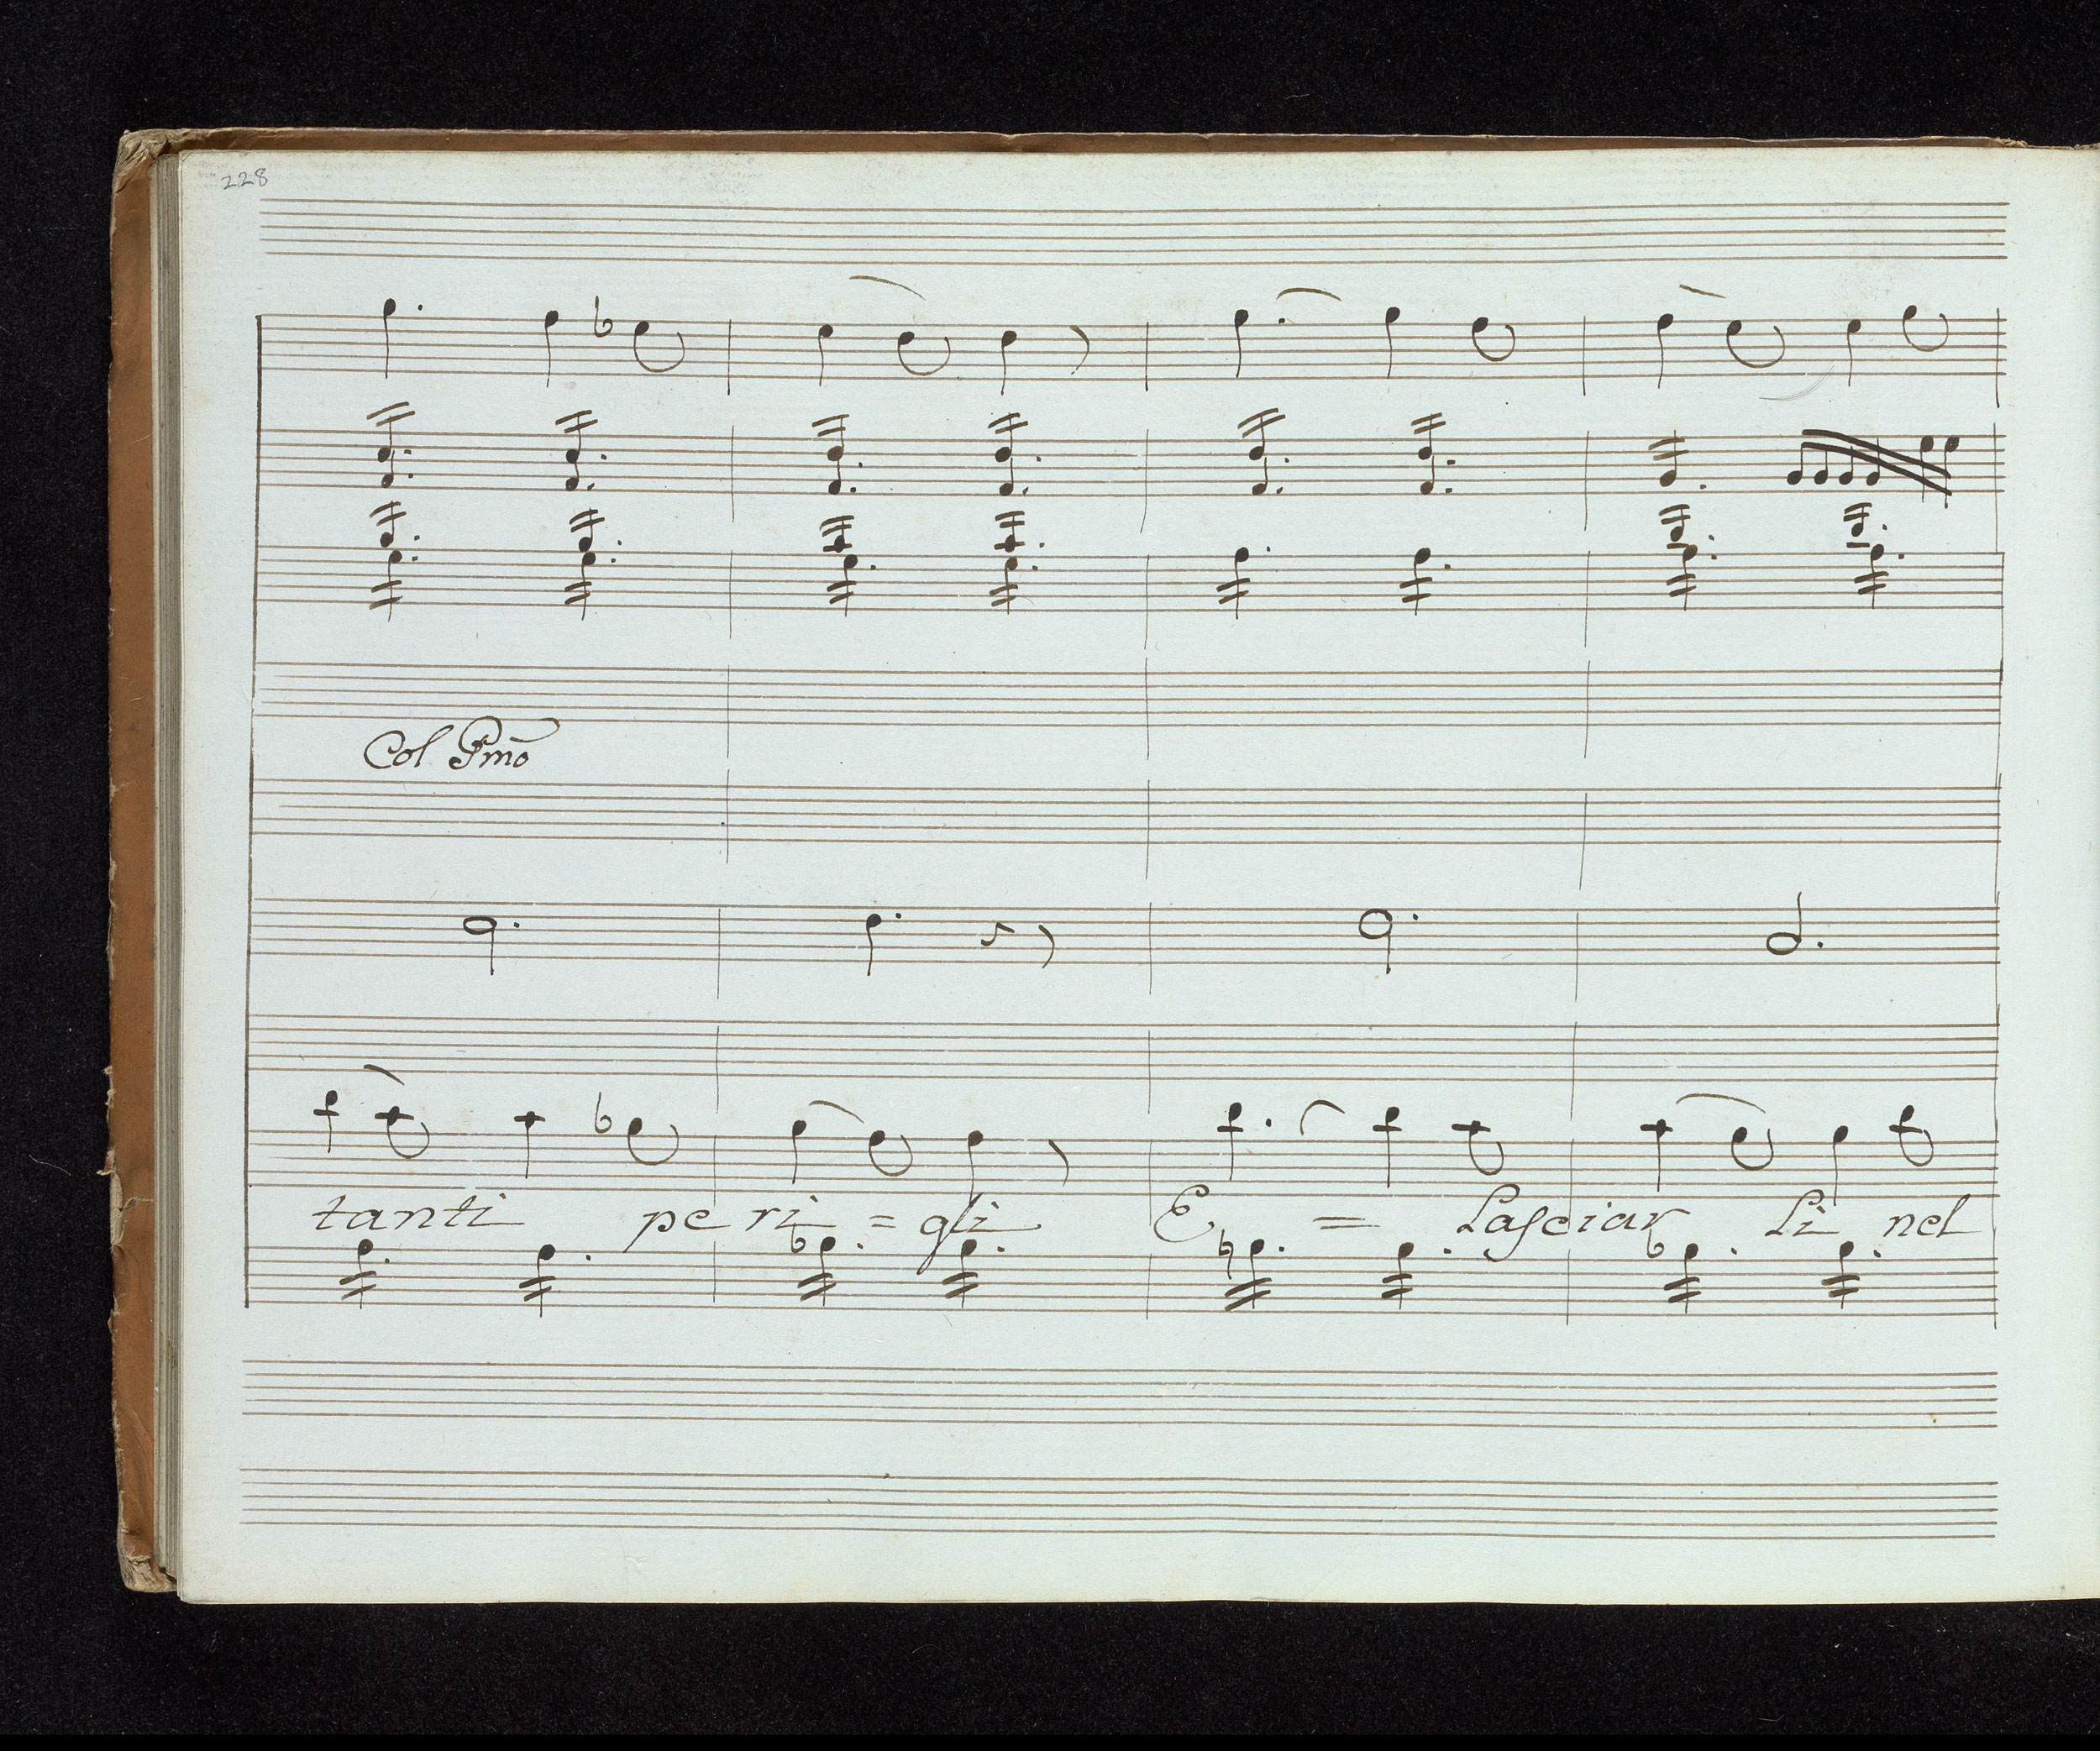 228
Col Pmo
tanti pe ri = gli E = Lasciar Li nel